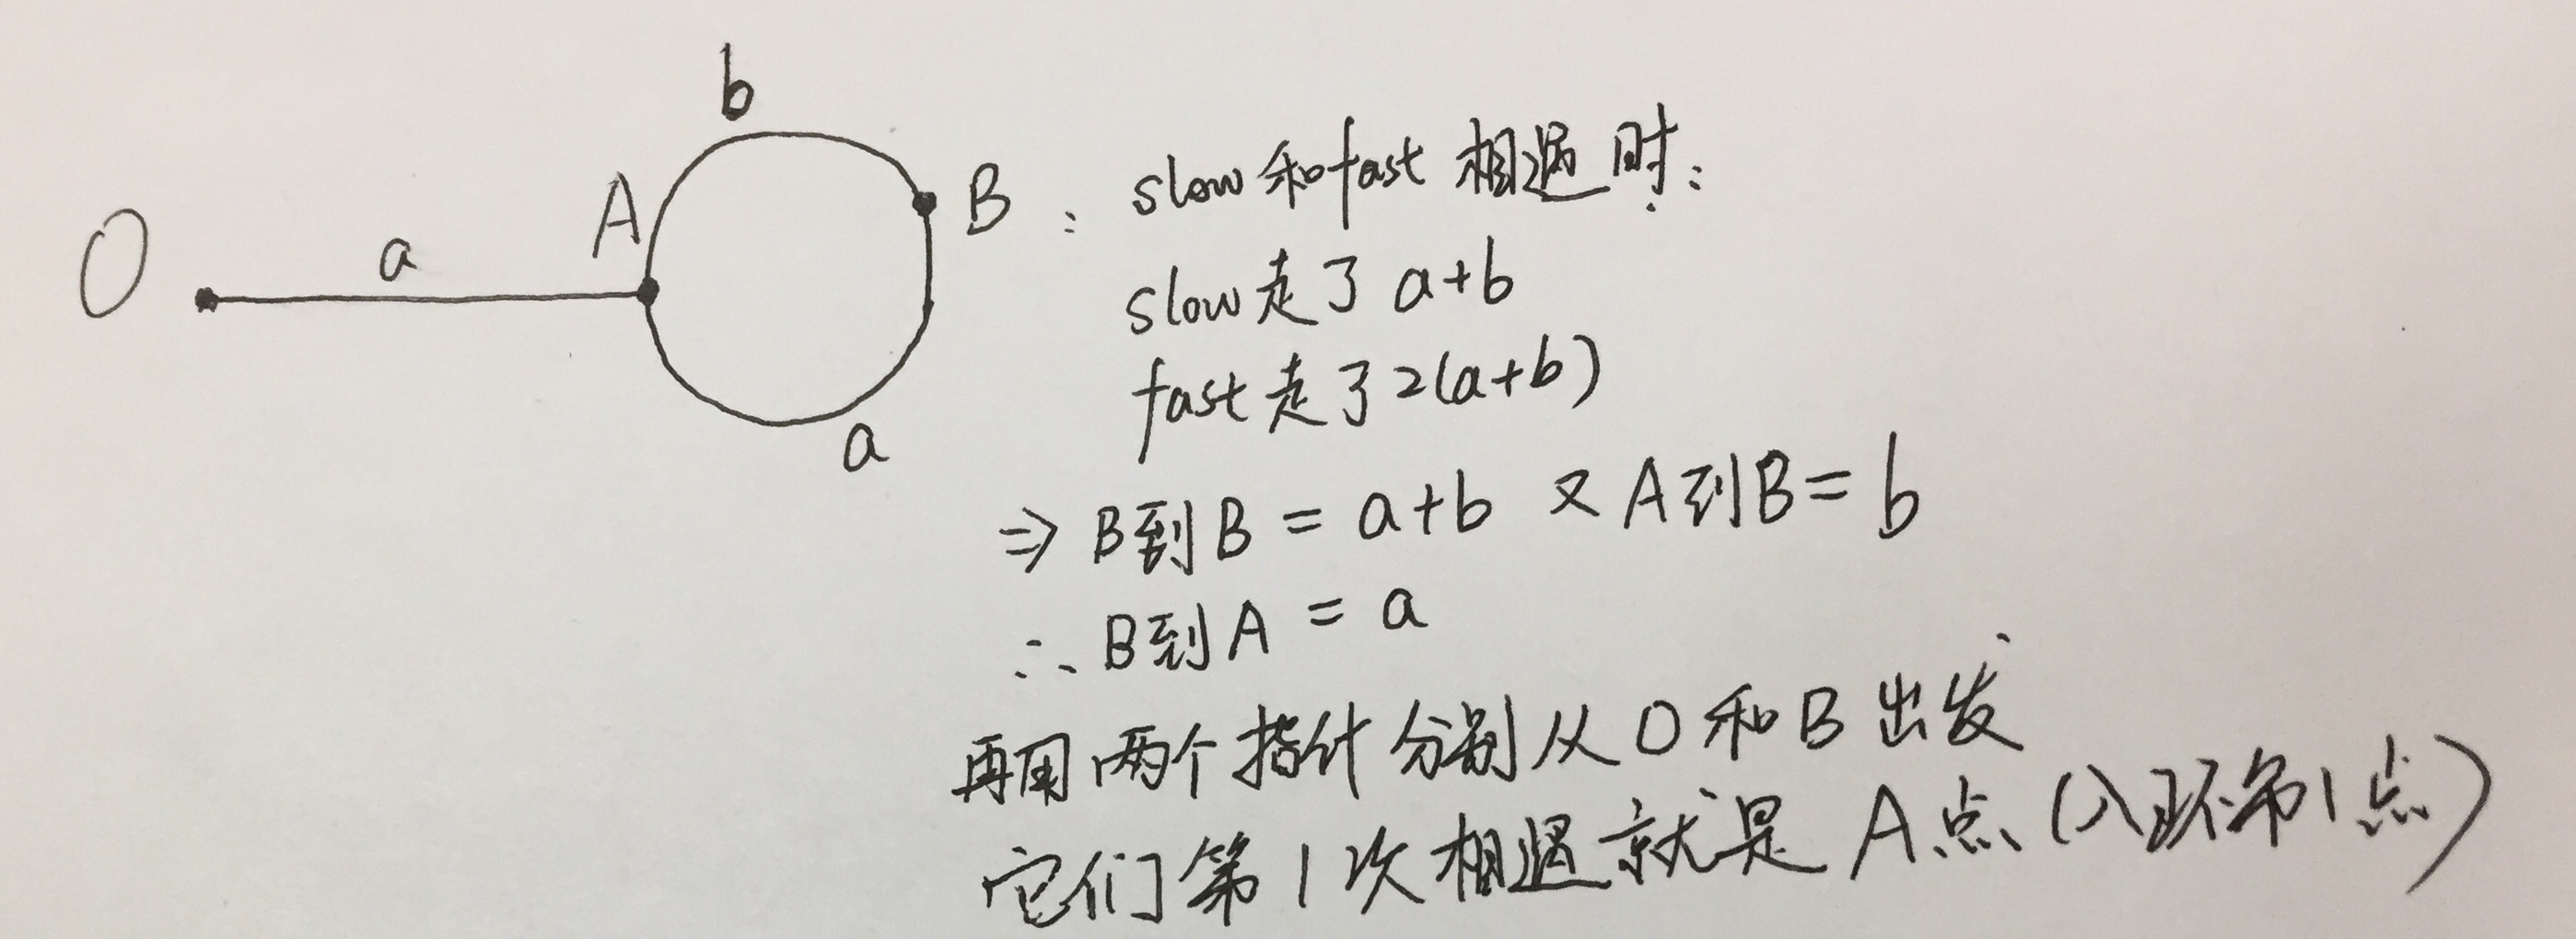 b
O
a
A
B : slow和fast相遇时:
slow走了 a+b
fast走了2(a+b)
a
⇒ B到B = a+b 又A到B = b
∴ B到A = a
再用两个指针分别从O和B出发
它们第1次相遇就是A点(入环第1点)